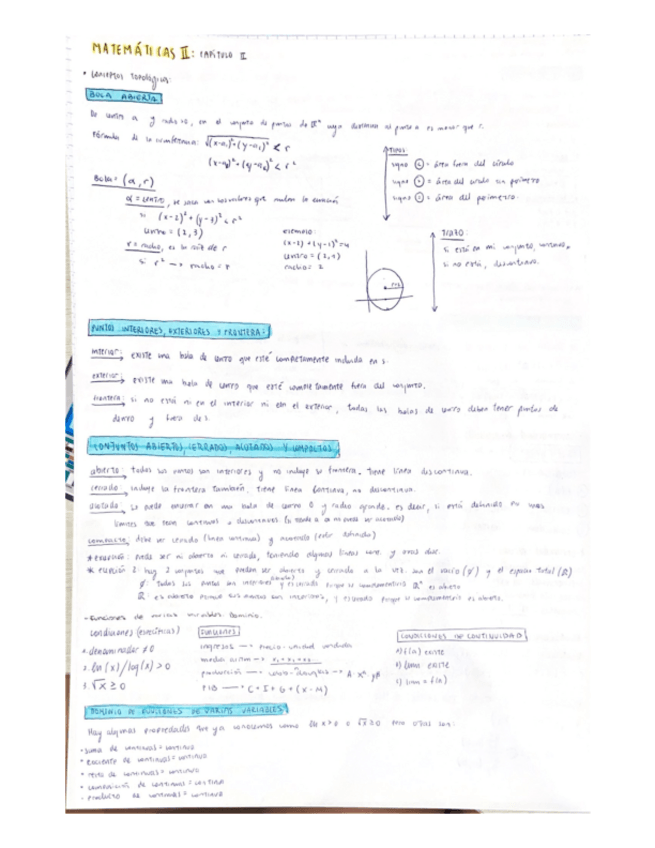 MATEMÁTICAS II: CAPÍTULO II
• Conceptos topológicos:
BOLA ABIERTA
De centro a y radio >0, es el conjunto de puntos de ℝⁿ cuya distancia al punto a es menor que r.
Fórmula de la circunferencia: √(x-a₁)²+(y-a₂)² < r
(x-a₁)²+(y-a₂)² < r²
TIPOS:
signo = área fuera del círculo
signo = área del círculo sin perímetro
signo = área del perímetro.
Bola = (a, r)
a = centro,
si (x-2)²+(y-3)² < r²
centro = (2,3)
r = radio, es la raíz de r
si r² → radio = r
ejemplo:
(x-2)+(y-1)²=4
centro = (2,1)
radio = 2
TRAZO:
si está en mi conjunto, continuo,
si no está, discontinuo.
PUNTOS INTERIORES, EXTERIORES Y FRONTERA:
interior: existe una bola de centro que esté completamente incluida en s.
exterior: existe una bola de centro que esté completamente fuera del conjunto.
frontera: si no está ni en el interior ni en el exterior, todas las bolas de centro deben tener puntos de
dentro y fuera de s.
CONJUNTOS ABIERTOS, CERRADOS, ACOTADOS Y COMPACTOS
abierto: todos sus puntos son interiores y no incluye su frontera. Tiene línea discontinua.
cerrado: incluye la frontera también, tiene línea continua, no discontinua.
acotado: se puede encerrar en una bola de centro 0 y radio grande, es decir, si está definido por unos
límites que sean continuos o discontinuos
compacto: debe ser cerrado (línea continua) y acotado
* excepción: puede ser ni abierto ni cerrado, teniendo algunas líneas cont. y otras disc.
* excepción 2: hay 2 conjuntos que pueden ser abiertos y cerrados a la vez: son el vacío (∅) y el espacio total (ℝ)
∅: todos sus puntos son interiores y es cerrado porque su complementario ℝⁿ es abierto
ℝ: es abierto porque sus puntos son interiores, y es cerrado porque su complementario es abierto.
• Funciones de varias variables. Dominio.
condiciones (específicas)
1. denominador ≠ 0
2. ln(x)/log(x) > 0
3. √x ≥ 0
FUNCIONES
ingresos → precio · unidad vendida
media aritm → x₁+x₂+x₃
producción → Cobb-Douglas → A xᵅ yᵝ
PIB → C + I + G + (X-M)
CONDICIONES DE CONTINUIDAD
1) f(a) existe
2) lim existe
3) lim = f(a)
DOMINIO DE FUNCIONES DE VARIAS VARIABLES
Hay algunas propiedades que ya conocemos como ln x>0 o √x≥0 pero otras son:
• suma de continuas = continua
• cociente de continuas = continuo
• resta de continuas = continuo
• composición de continuas = continua
• producto de continuas = continua